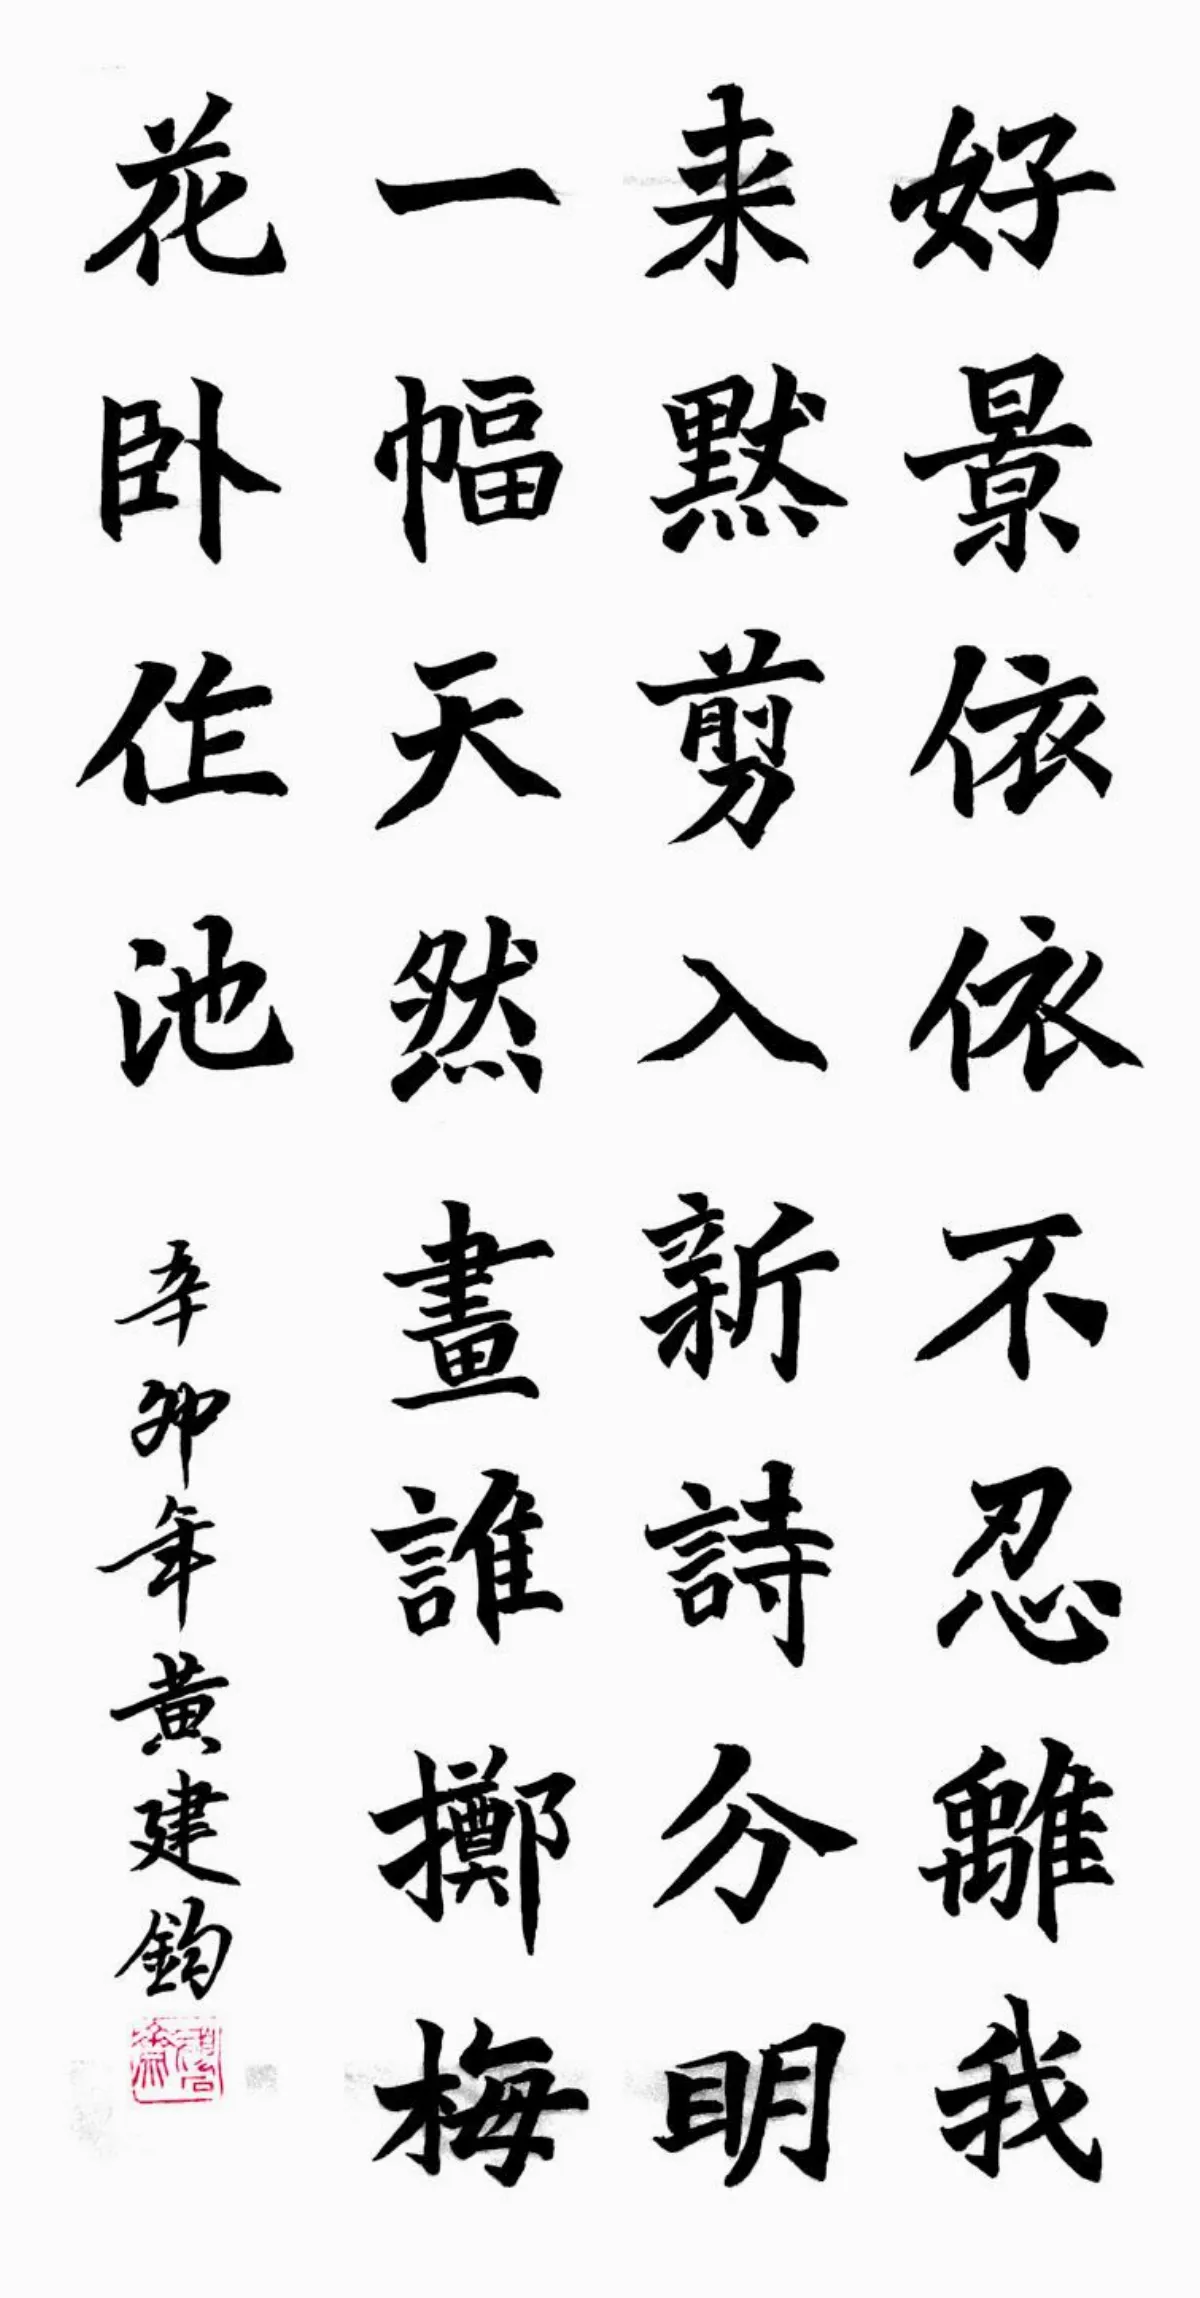 好景依依不忍離我
来默剪入新詩分明
一幅天然畫誰擲梅
花卧作池
辛卯年黄建鈞